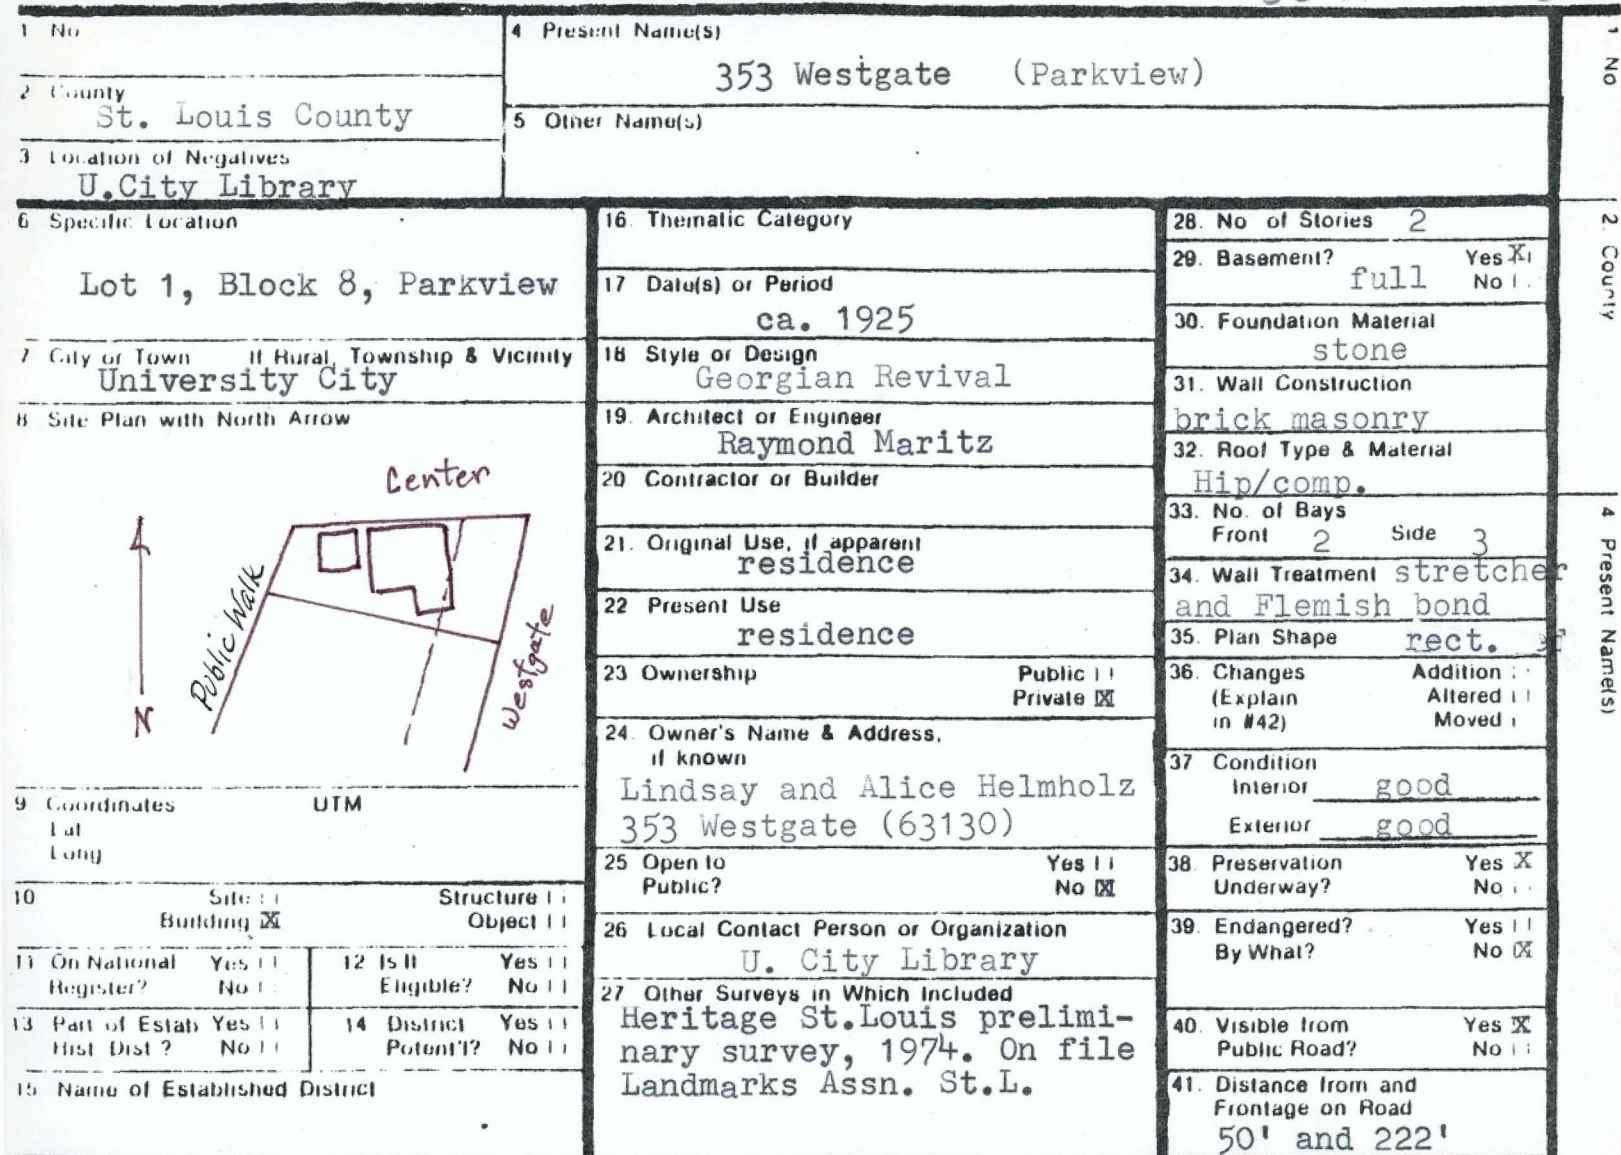 1 No
4 Present Name(s)
353 Westgate (Parkview)
2 County
St. Louis County
5 Other Name(s)
3 Location of Negatives
U.City Library
6 Specific Location
Lot 1, Block 8, Parkview
7 City or Town If Rural, Township & Vicinity
University City
8 Site Plan with North Arrow
Center
Public Walk
Westgate
N
9 Coordinates UTM
Lat
Long
10 Site
Structure
Building X
Object
11 On National Register? Yes No
12 Is It Eligible? Yes No
13 Part of Estab Hist Dist? Yes No
14 District Potent'l? Yes No
15 Name of Established District
16. Thematic Category
17 Date(s) or Period
ca. 1925
18 Style or Design
Georgian Revival
19. Architect or Engineer
Raymond Maritz
20 Contractor or Builder
21. Original Use, if apparent
residence
22 Present Use
residence
23 Ownership Public
Private X
24. Owner's Name & Address,
if known
Lindsay and Alice Helmholz
353 Westgate (63130)
25 Open to Yes
Public? No X
26 Local Contact Person or Organization
U. City Library
27 Other Surveys in Which Included
Heritage St.Louis prelimi-
nary survey, 1974. On file
Landmarks Assn. St.L.
28. No of Stories 2
29. Basement? Yes X
full No
30. Foundation Material
stone
31. Wall Construction
brick masonry
32. Roof Type & Material
Hip/comp.
33. No. of Bays
Front 2 Side 3
34. Wall Treatment stretcher
and Flemish bond
35. Plan Shape rect.
36. Changes Addition
(Explain Altered
in #42) Moved
37 Condition
Interior good
Exterior good
38. Preservation Yes X
Underway? No
39. Endangered? Yes
By What? No X
40. Visible from Yes X
Public Road? No
41. Distance from and
Frontage on Road
50' and 222'
1 No
2. County
4 Present Name(s)